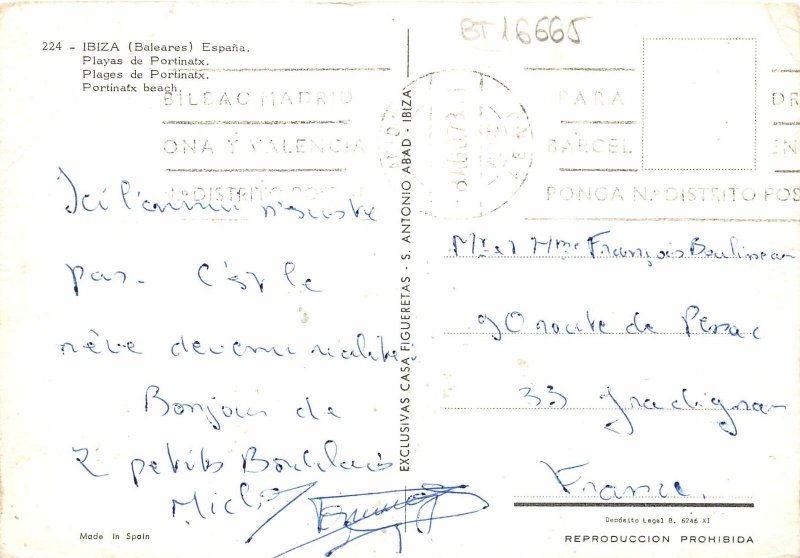 BT 16665
224 - IBIZA (Baleares) España.
Playas de Portinatx.
Plages de Portinatx.
Portinatx beach.
BILBAO MADRID
ONA Y VALENCIA
N.º DISTRITO POSTAL
PARA
BARCEL
PONGA N.º DISTRITO POS
DR
EN
Ici l'ennui n'existe
pas. C'est le
rêve devenu réalité.
Bonjour de
2 petits Bordelais
EXCLUSIVAS CASA FIGUERETAS - S. ANTONIO ABAD - IBIZA
Mr et Mme François Boulineau
90 route de Pessac
33 Gradignan
France.
Made in Spain
Depósito Legal B. 6246 XI
REPRODUCCION PROHIBIDA